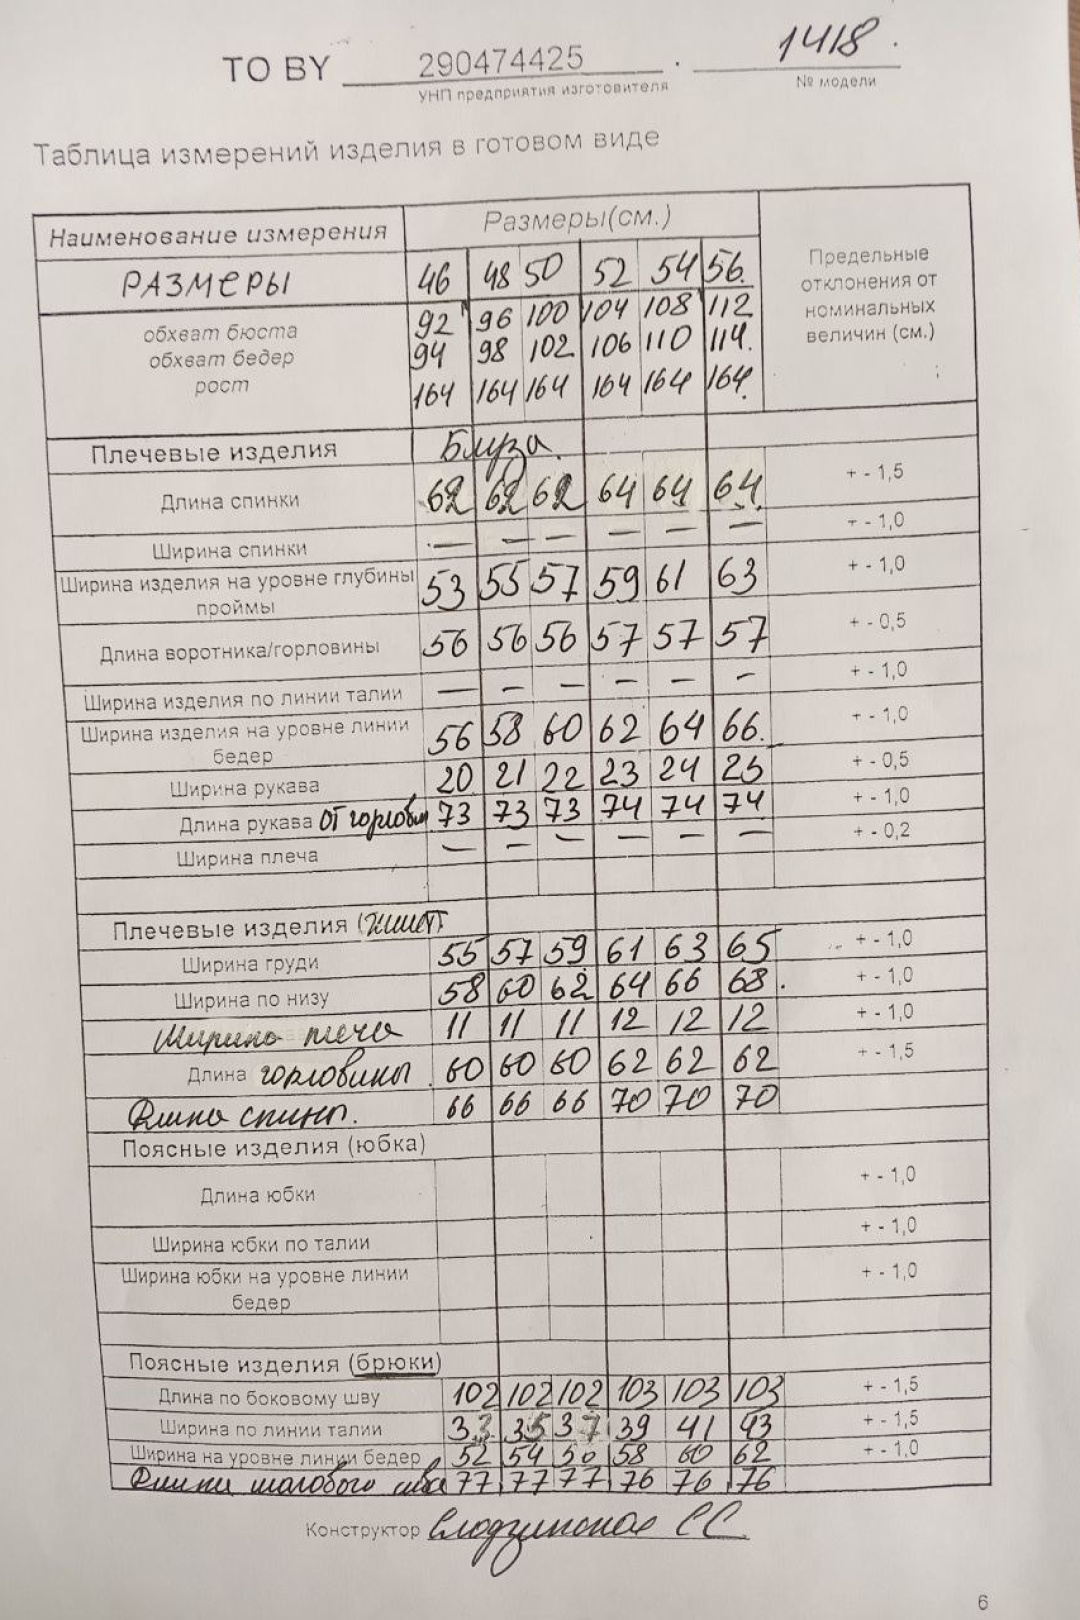 ТО BY 290474425 . 1418.
УНП предприятия изготовителя № модели
Таблица измерений изделия в готовом виде
Наименование измерения Размеры(см.) Предельные отклонения от номинальных величин (см.)
РАЗМЕРЫ 46 48 50 52 54 56.
обхват бюста 92 96 100 104 108 112
обхват бедер 94 98 102 106 110 114.
рост 164 164 164 164 164 164.
Плечевые изделия Блуза.
Длина спинки 62 62 62 64 64 64. + - 1,5
Ширина спинки — — — — — — + - 1,0
Ширина изделия на уровне глубины проймы 53 55 57 59 61 63 + - 1,0
Длина воротника/горловины 56 56 56 57 57 57 + - 0,5
Ширина изделия по линии талии — — — — — — + - 1,0
Ширина изделия на уровне линии бедер 56 58 60 62 64 66. + - 1,0
Ширина рукава 20 21 22 23 24 25 + - 0,5
Длина рукава от горлов 73 73 73 74 74 74 + - 1,0
Ширина плеча — — — — — — + - 0,2
Плечевые изделия (жилет)
Ширина груди 55 57 59 61 63 65 + - 1,0
Ширина по низу 58 60 62 64 66 68. + - 1,0
Ширина плеча 11 11 11 12 12 12 + - 1,0
Длина горловины 60 60 60 62 62 62 + - 1,5
Длина спины. 66 66 66 70 70 70
Поясные изделия (юбка)
Длина юбки + - 1,0
Ширина юбки по талии + - 1,0
Ширина юбки на уровне линии бедер + - 1,0
Поясные изделия (брюки)
Длина по боковому шву 102 102 102 103 103 103 + - 1,5
Ширина по линии талии 33 35 37 39 41 43 + - 1,5
Ширина на уровне линии бедер 52 54 56 58 60 62 + - 1,0
Длина шагового шва 77 77 77 76 76 76
Конструктор СС
6